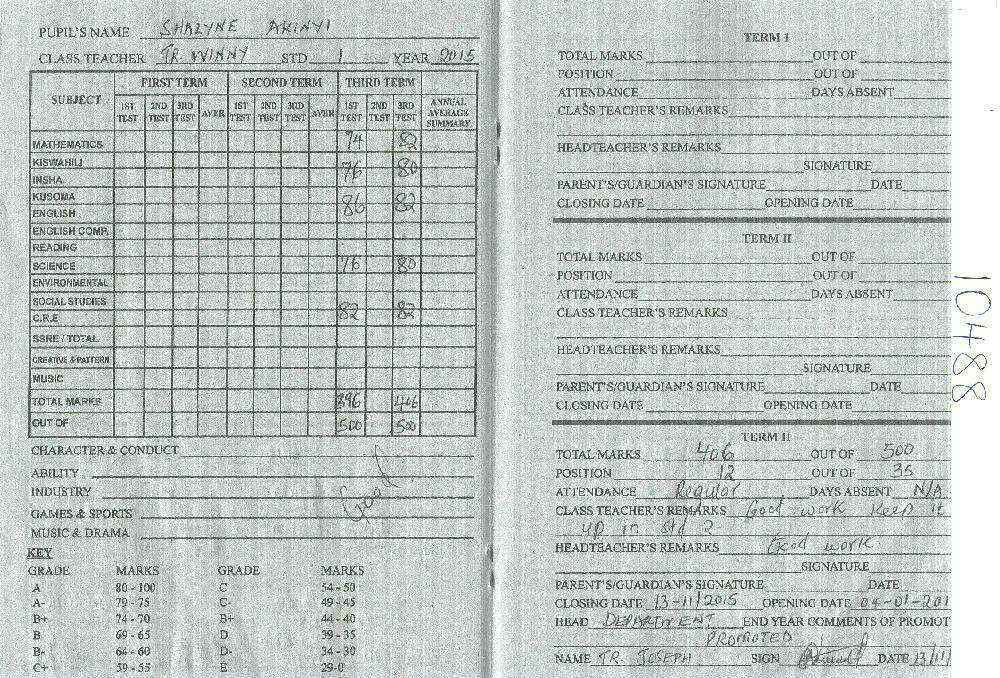 PUPIL'S NAME SHALYNE AKINYI
CLASS TEACHER TR WINNY STD 1 YEAR 2015
SUBJECT FIRST TERM SECOND TERM THIRD TERM ANNUAL AVERAGE SUMMARY
1ST TEST 2ND TEST 3RD TEST AVER 1ST TEST 2ND TEST 3RD TEST AVER 1ST TEST 2ND TEST 3RD TEST
MATHEMATICS 74 82
KISWAHILI
INSHA 76 80
KUSOMA
ENGLISH 86 82
ENGLISH COMP.
READING
SCIENCE 76 80
ENVIRONMENTAL
SOCIAL STUDIES
C.R.E 82 82
SSRE / TOTAL
CREATIVE & PATTERN
MUSIC
TOTAL MARKS 396
OUT OF 500 500
CHARACTER & CONDUCT
ABILITY
INDUSTRY Good
GAMES & SPORTS
MUSIC & DRAMA
KEY
GRADE MARKS GRADE MARKS
A 80 - 100 C 54 - 50
A- 79 - 75 C- 49 - 45
B+ 74 - 70 B+ 44 - 40
B 69 - 65 D 39 - 35
B- 64 - 60 D- 34 - 30
C+ 59 - 55 E 29-0
TERM I
TOTAL MARKS OUT OF
POSITION OUT OF
ATTENDANCE DAYS ABSENT
CLASS TEACHER'S REMARKS
HEADTEACHER'S REMARKS
SIGNATURE
PARENT'S/GUARDIAN'S SIGNATURE DATE
CLOSING DATE OPENING DATE
TERM II
TOTAL MARKS OUT OF
POSITION OUT OF
ATTENDANCE DAYS ABSENT
CLASS TEACHER'S REMARKS
HEADTEACHER'S REMARKS
SIGNATURE
PARENT'S/GUARDIAN'S SIGNATURE DATE
CLOSING DATE OPENING DATE
TERM II
TOTAL MARKS 406 OUT OF 500
POSITION 12 OUT OF 35
ATTENDANCE Regular DAYS ABSENT N/A
CLASS TEACHER'S REMARKS Good work keep it
up in std 2
HEADTEACHER'S REMARKS Good work
SIGNATURE
PARENT'S/GUARDIAN'S SIGNATURE DATE
CLOSING DATE 13-11/2015 OPENING DATE 04-01-201
HEAD DEPARTMENT END YEAR COMMENTS OF PROMOT
PROMOTED
NAME TR. JOSEPH SIGN DATE 13/11/
10488